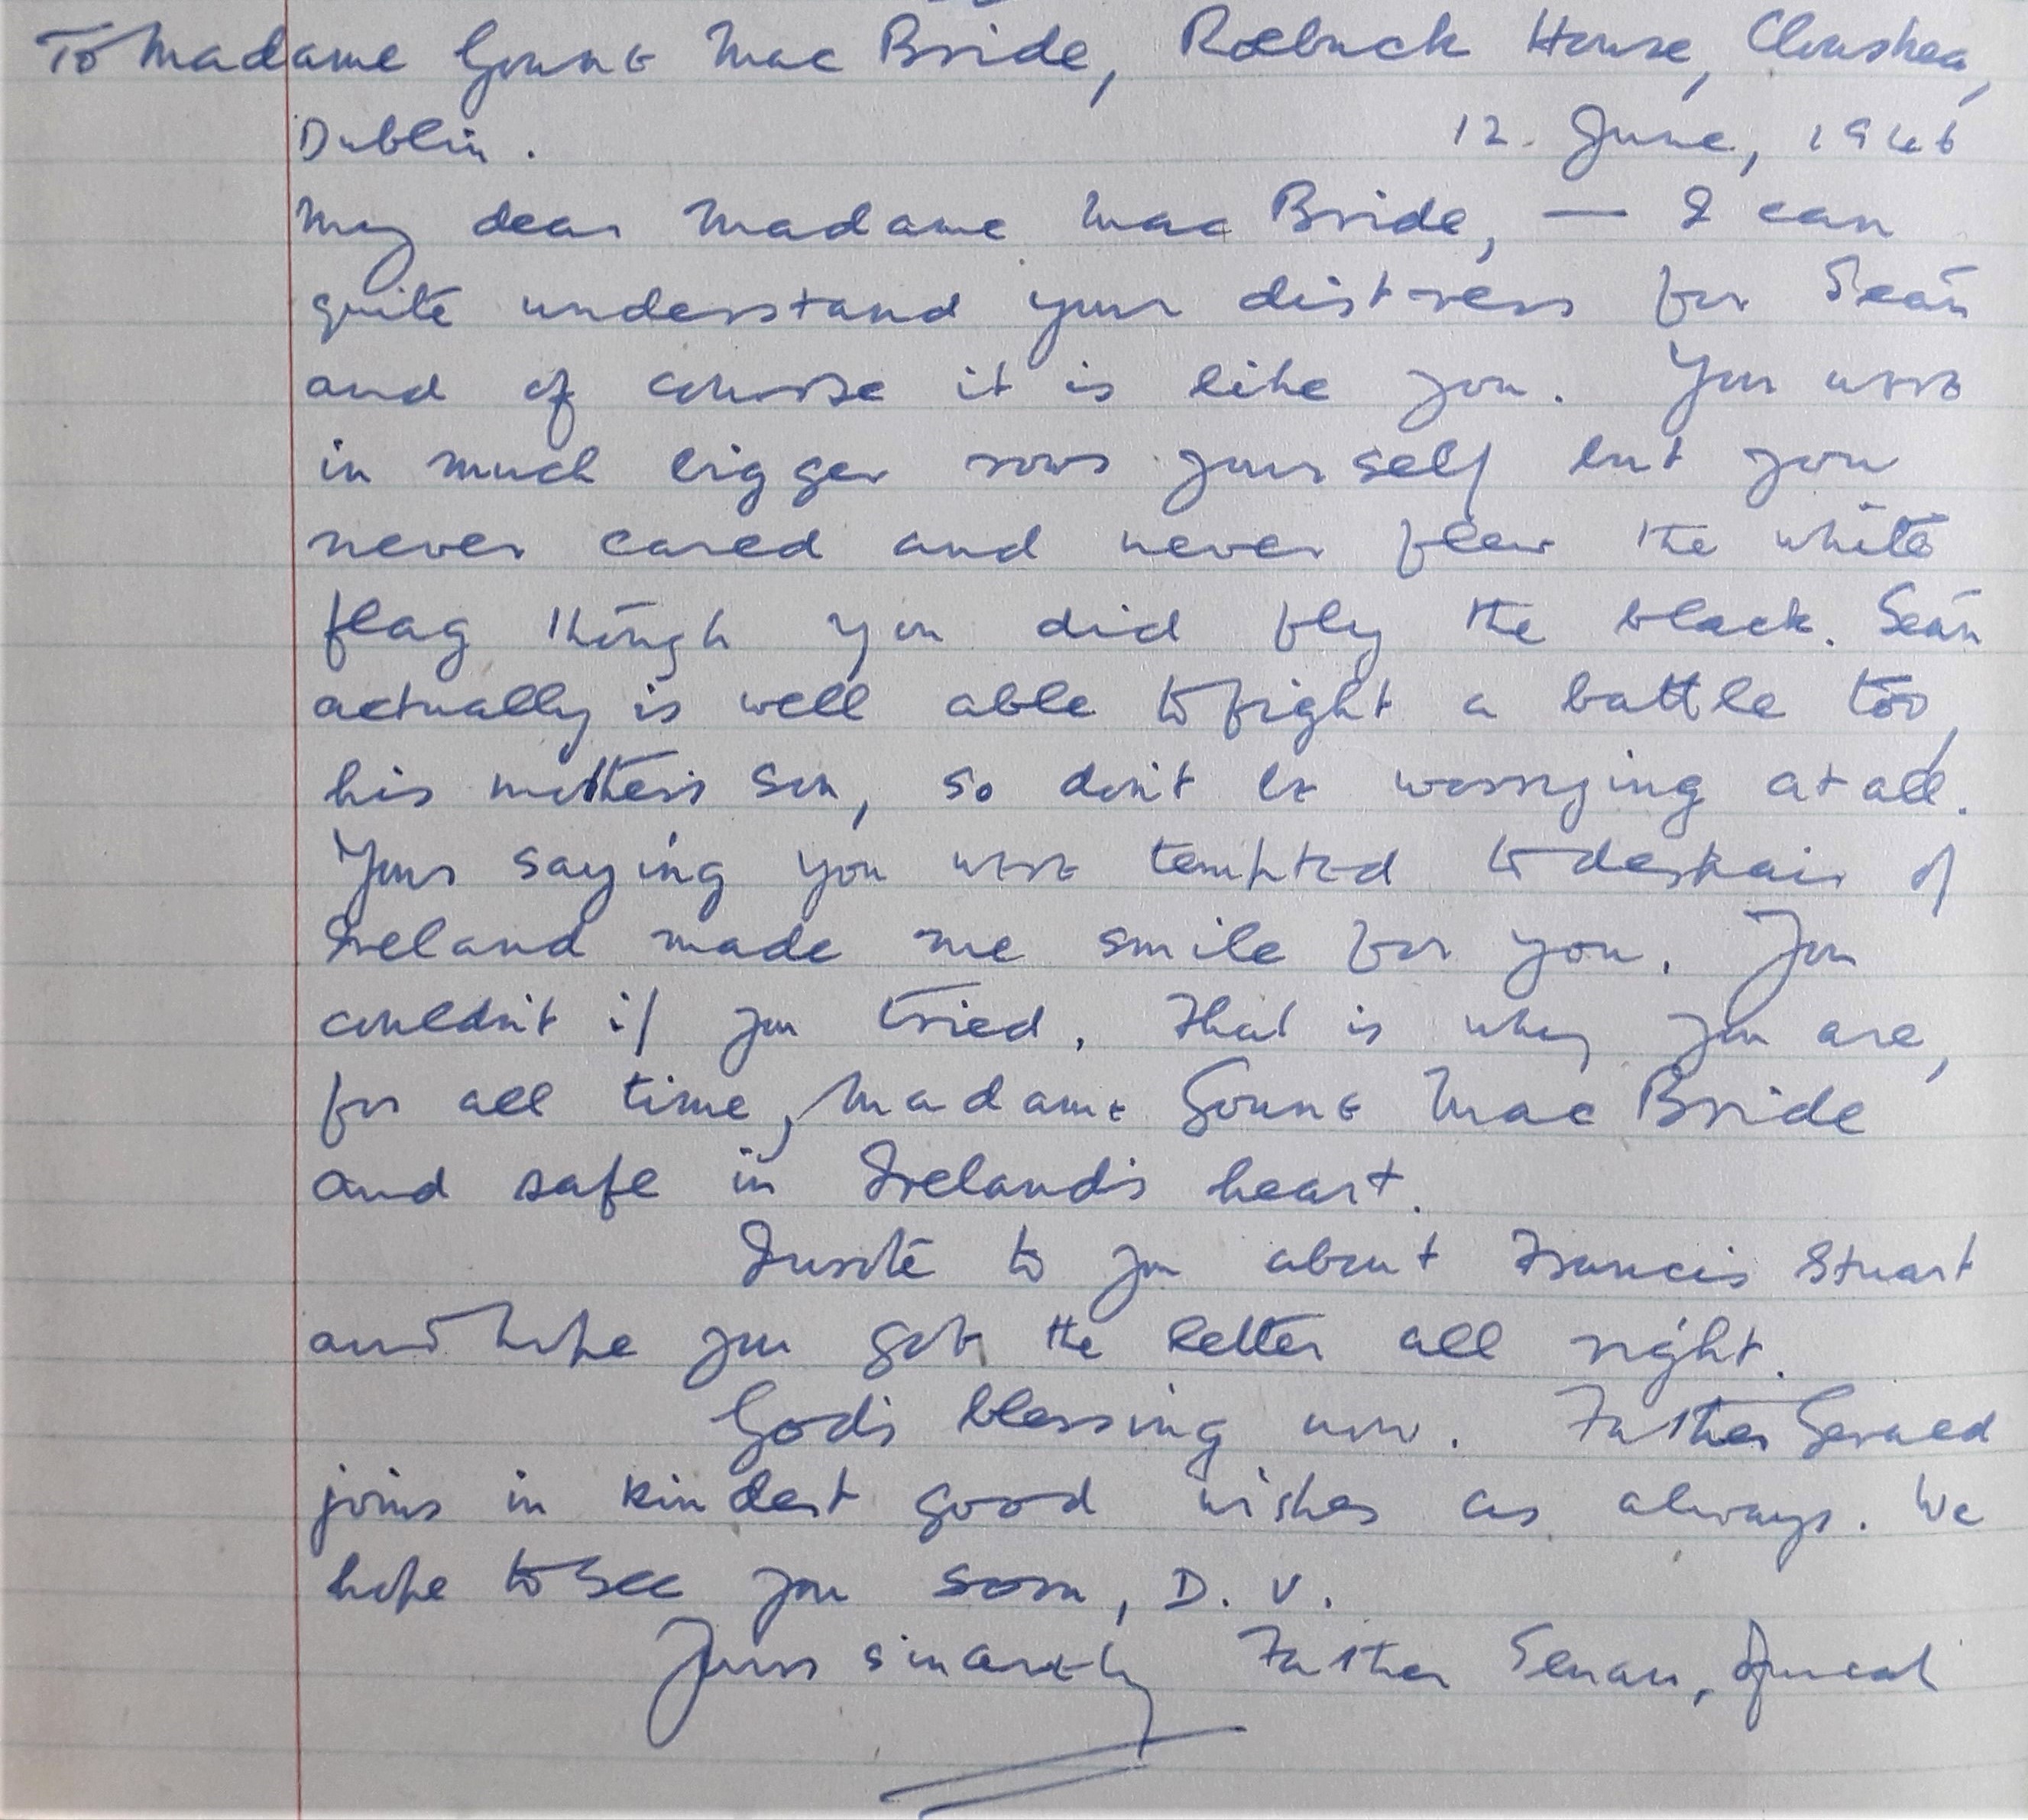 To Madame Gonne Mac Bride, Roebuck House, Clonskea,
Dublin. 12. June, 1946
My dear Madame Mac Bride, — I can
quite understand your distress for Seán
and of course it is like you. You were
in much bigger rows yourself but you
never cared and never flew the white
flag though you did fly the black. Seán
actually is well able to fight a battle too,
his mother's son, so don't be worrying at all.
Your saying you were tempted to despair of
Ireland made me smile for you. You
couldn't if you tried. That is why you are,
for all time, Madame Gonne Mac Bride
and safe in Ireland's heart.
I wrote to you about Francis Stuart
and hope you got the letter all right.
God's blessing now. Father Gerald
joins in kindest good wishes as always. We
hope to see you soon, D. V.
Yours sincerely Father Senan,